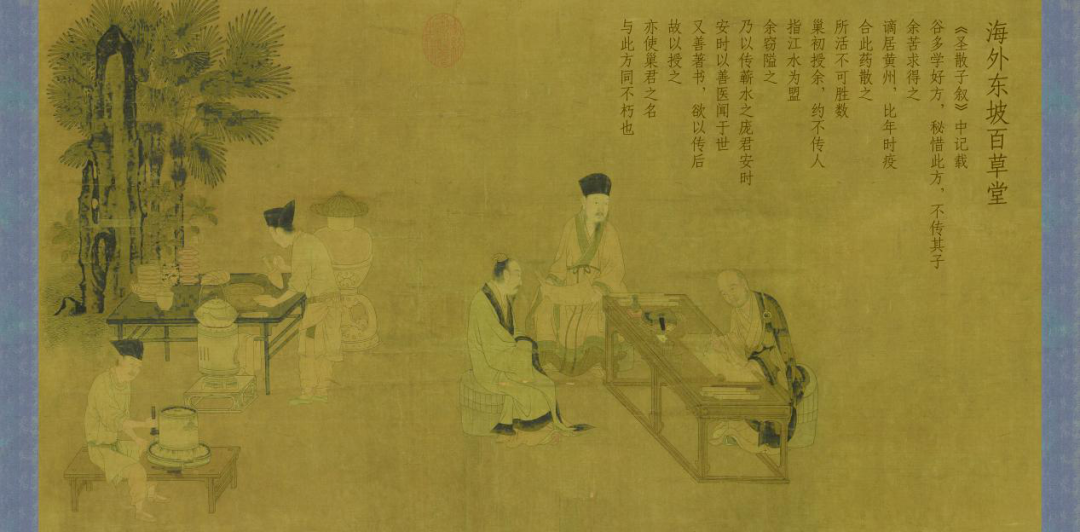 海外东坡百草堂
《圣散子叙》中记载
谷多学好方，秘惜此方，不传其子
余苦求得之
谪居黄州，比年时疫
合此药散之
所活不可胜数
巢初授余，约不传人
指江水为盟
余窃隘之
乃以传蕲水之庞君安时
安时以善医闻于世
又善著书，欲以传后
故以授之
亦使巢君之名
与此方同不朽也